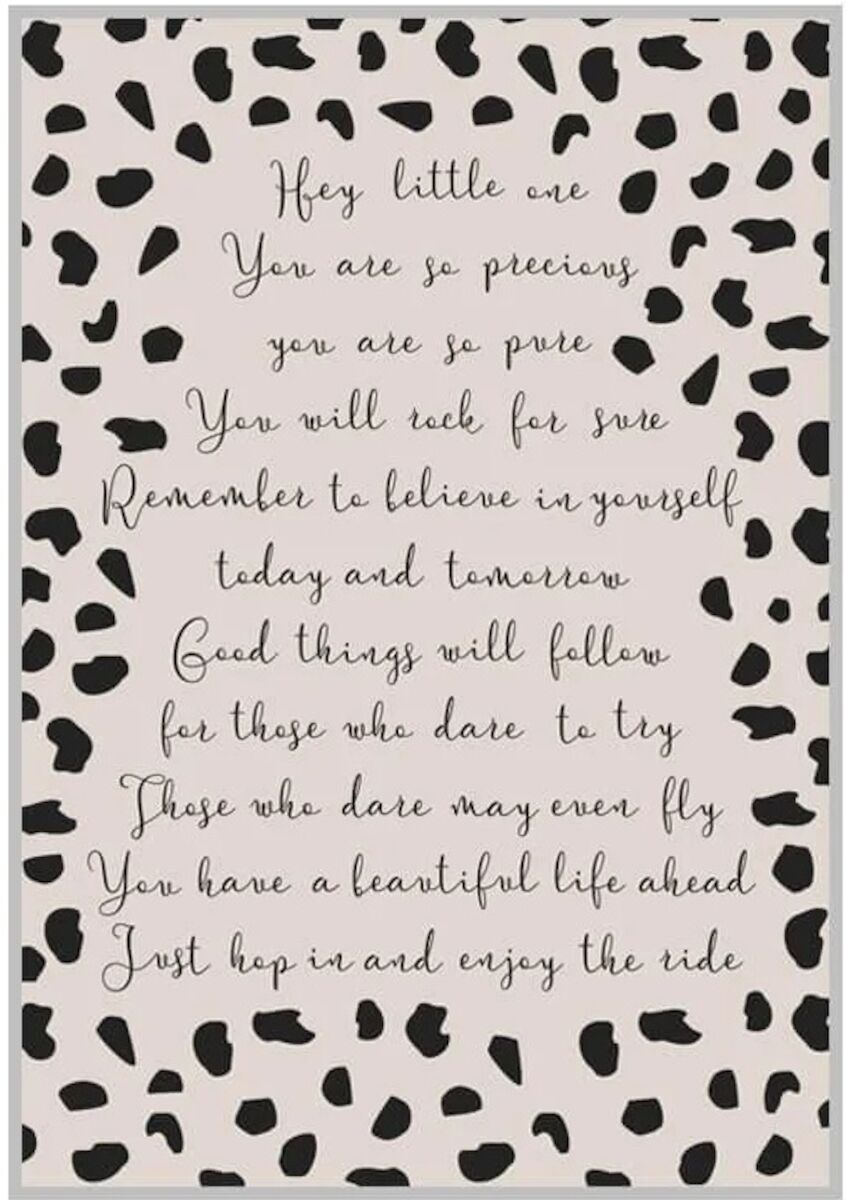 Hey little one
You are so precious
you are so pure
You will rock for sure
Remember to believe in yourself
today and tomorrow
Good things will follow
for those who dare to try
Those who dare may even fly
You have a beautiful life ahead
Just hop in and enjoy the ride